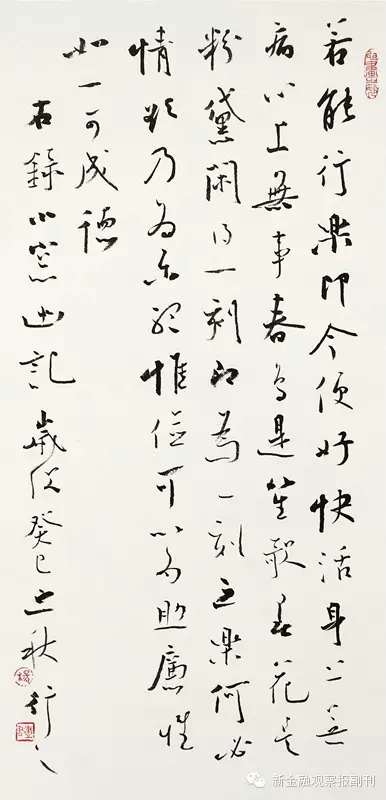 若能行樂即今便好快活身上無
病心上無事春鳥是笙歌春花是
粉黛閑得一刻即為一刻之樂何必
情欲乃為樂耶惟儉可以為助廉惟
恕可成德
右錄小窗幽記歲次癸巳之秋
新金融观察报副刊